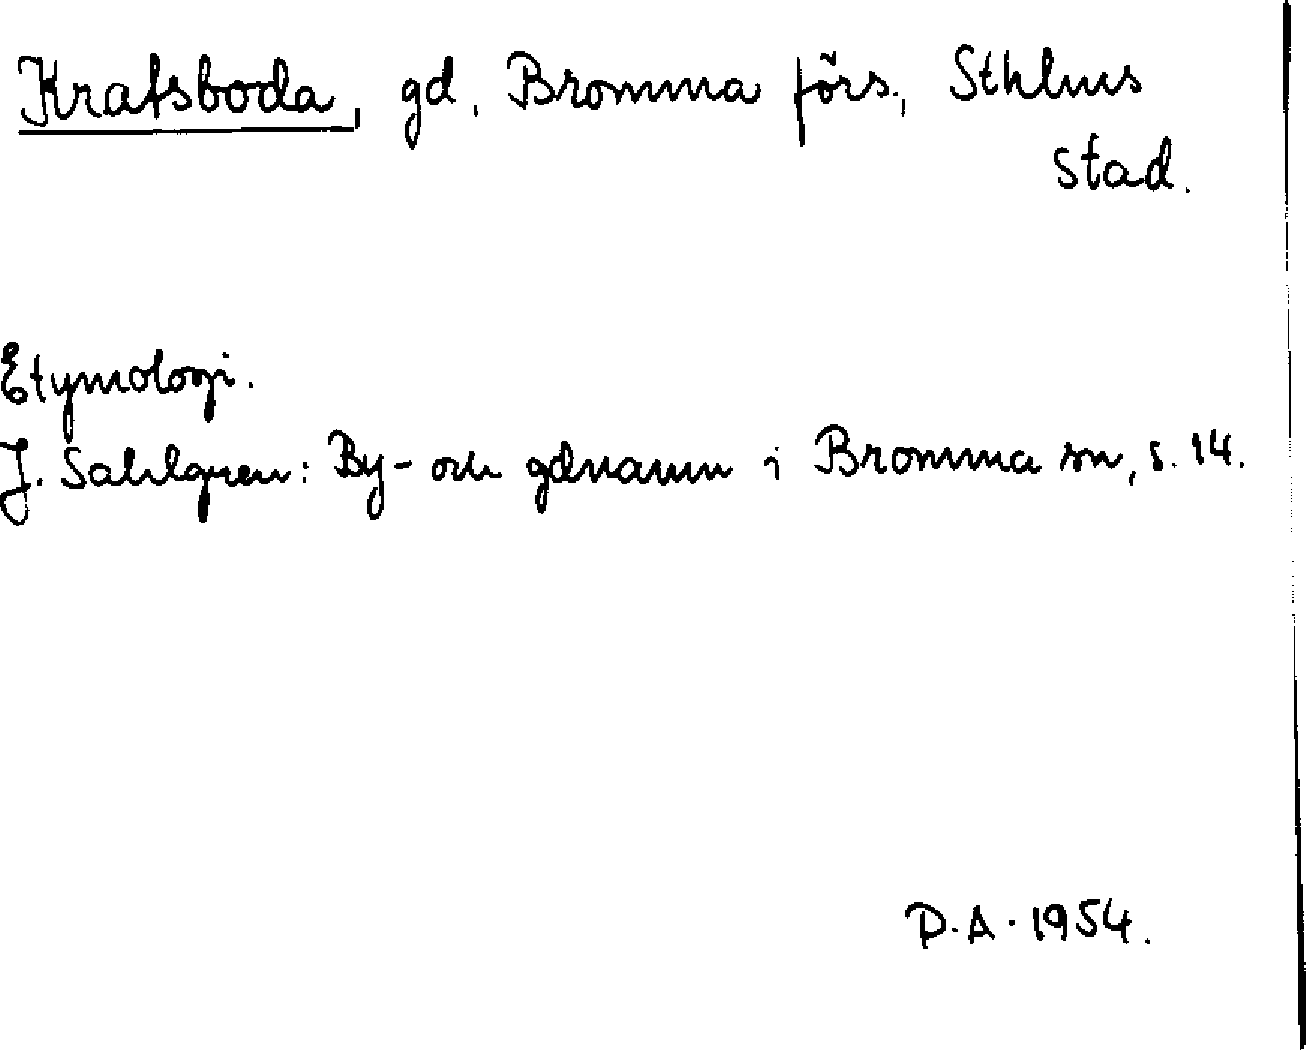 Kratsboda, gd, Bromma förs., Sthlms
stad.
Etymologi.
J. Sahlgren: By- och gdnamn i Bromma sn, s. 14.
P.A. 1954.